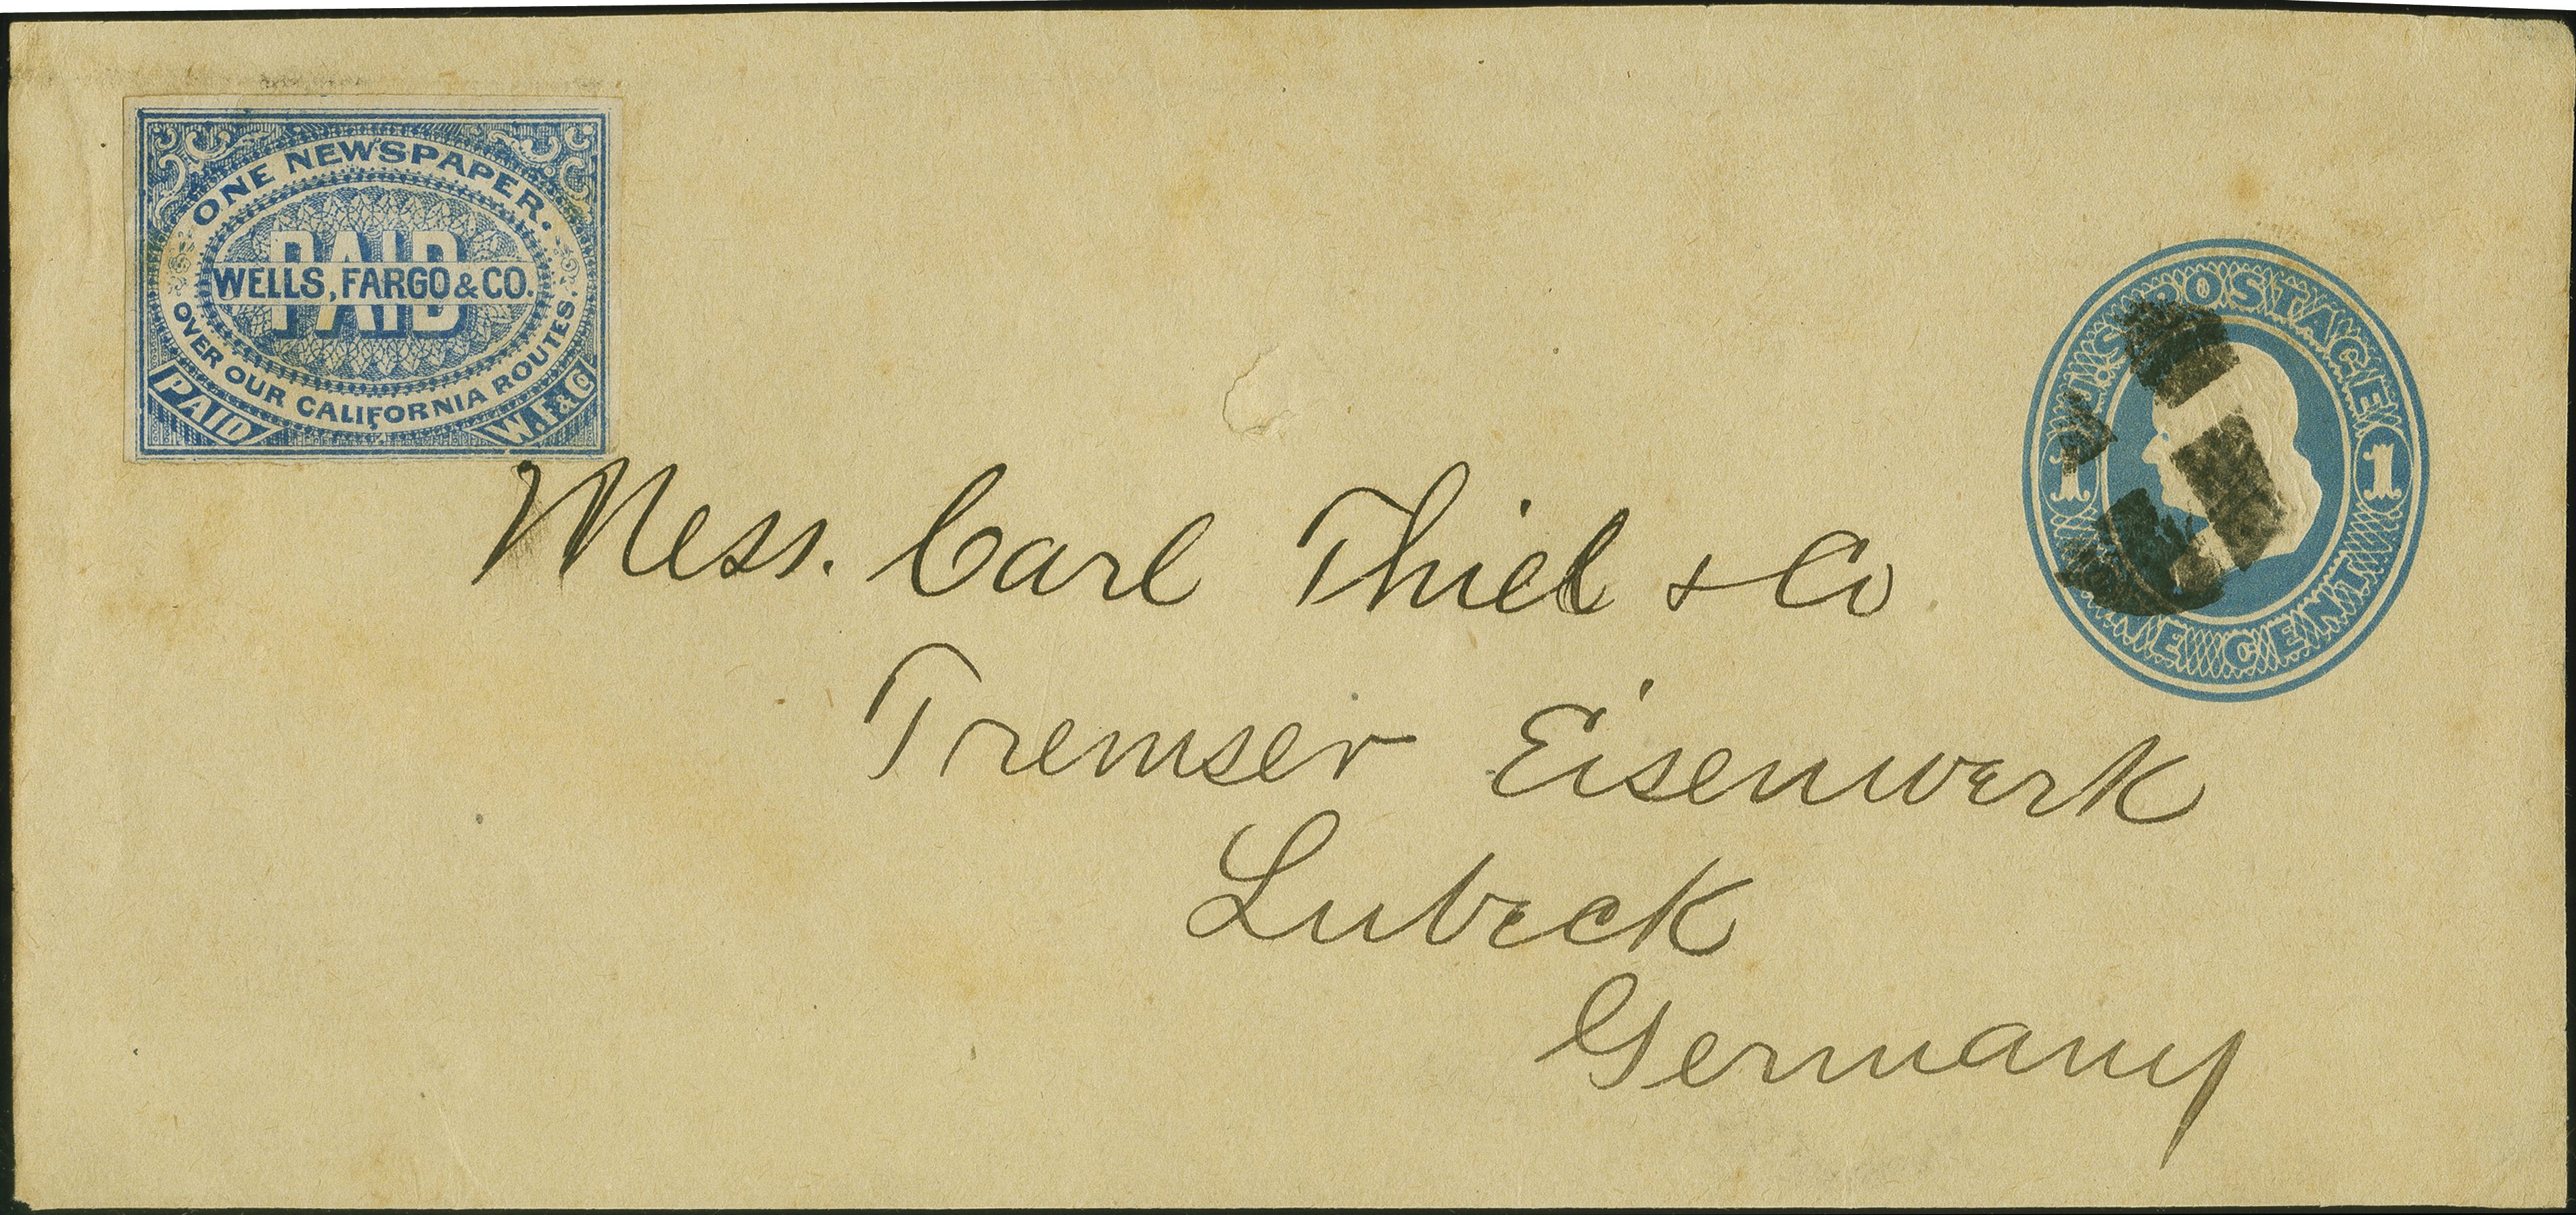 ONE NEWSPAPER.
PAID
WELLS, FARGO & CO.
OVER OUR CALIFORNIA ROUTES.
PAID
W.F.& Co
U.S. POSTAGE
1 1
ONE CENT
Mess. Carl Thiel & Co
Tremser Eisenwerk
Lubeck
Germany